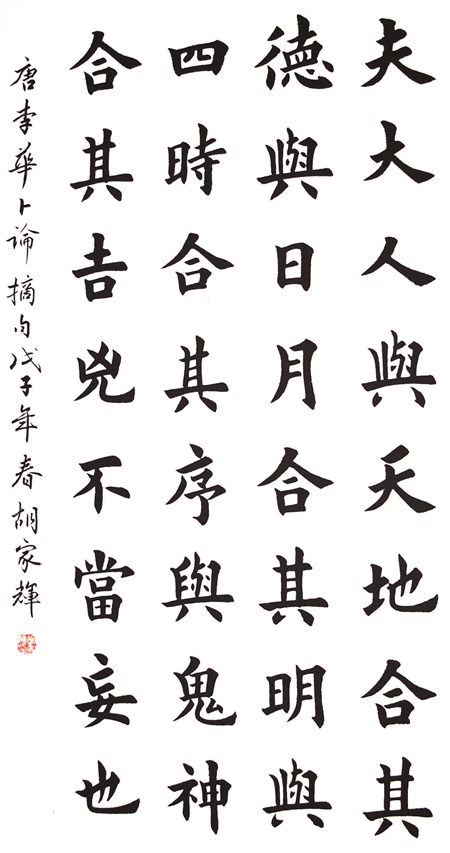 夫大人與天地合其
德與日月合其明與
四時合其序與鬼神
合其吉兇不當妄也
唐李華卜論摘句戊子年春胡家輝